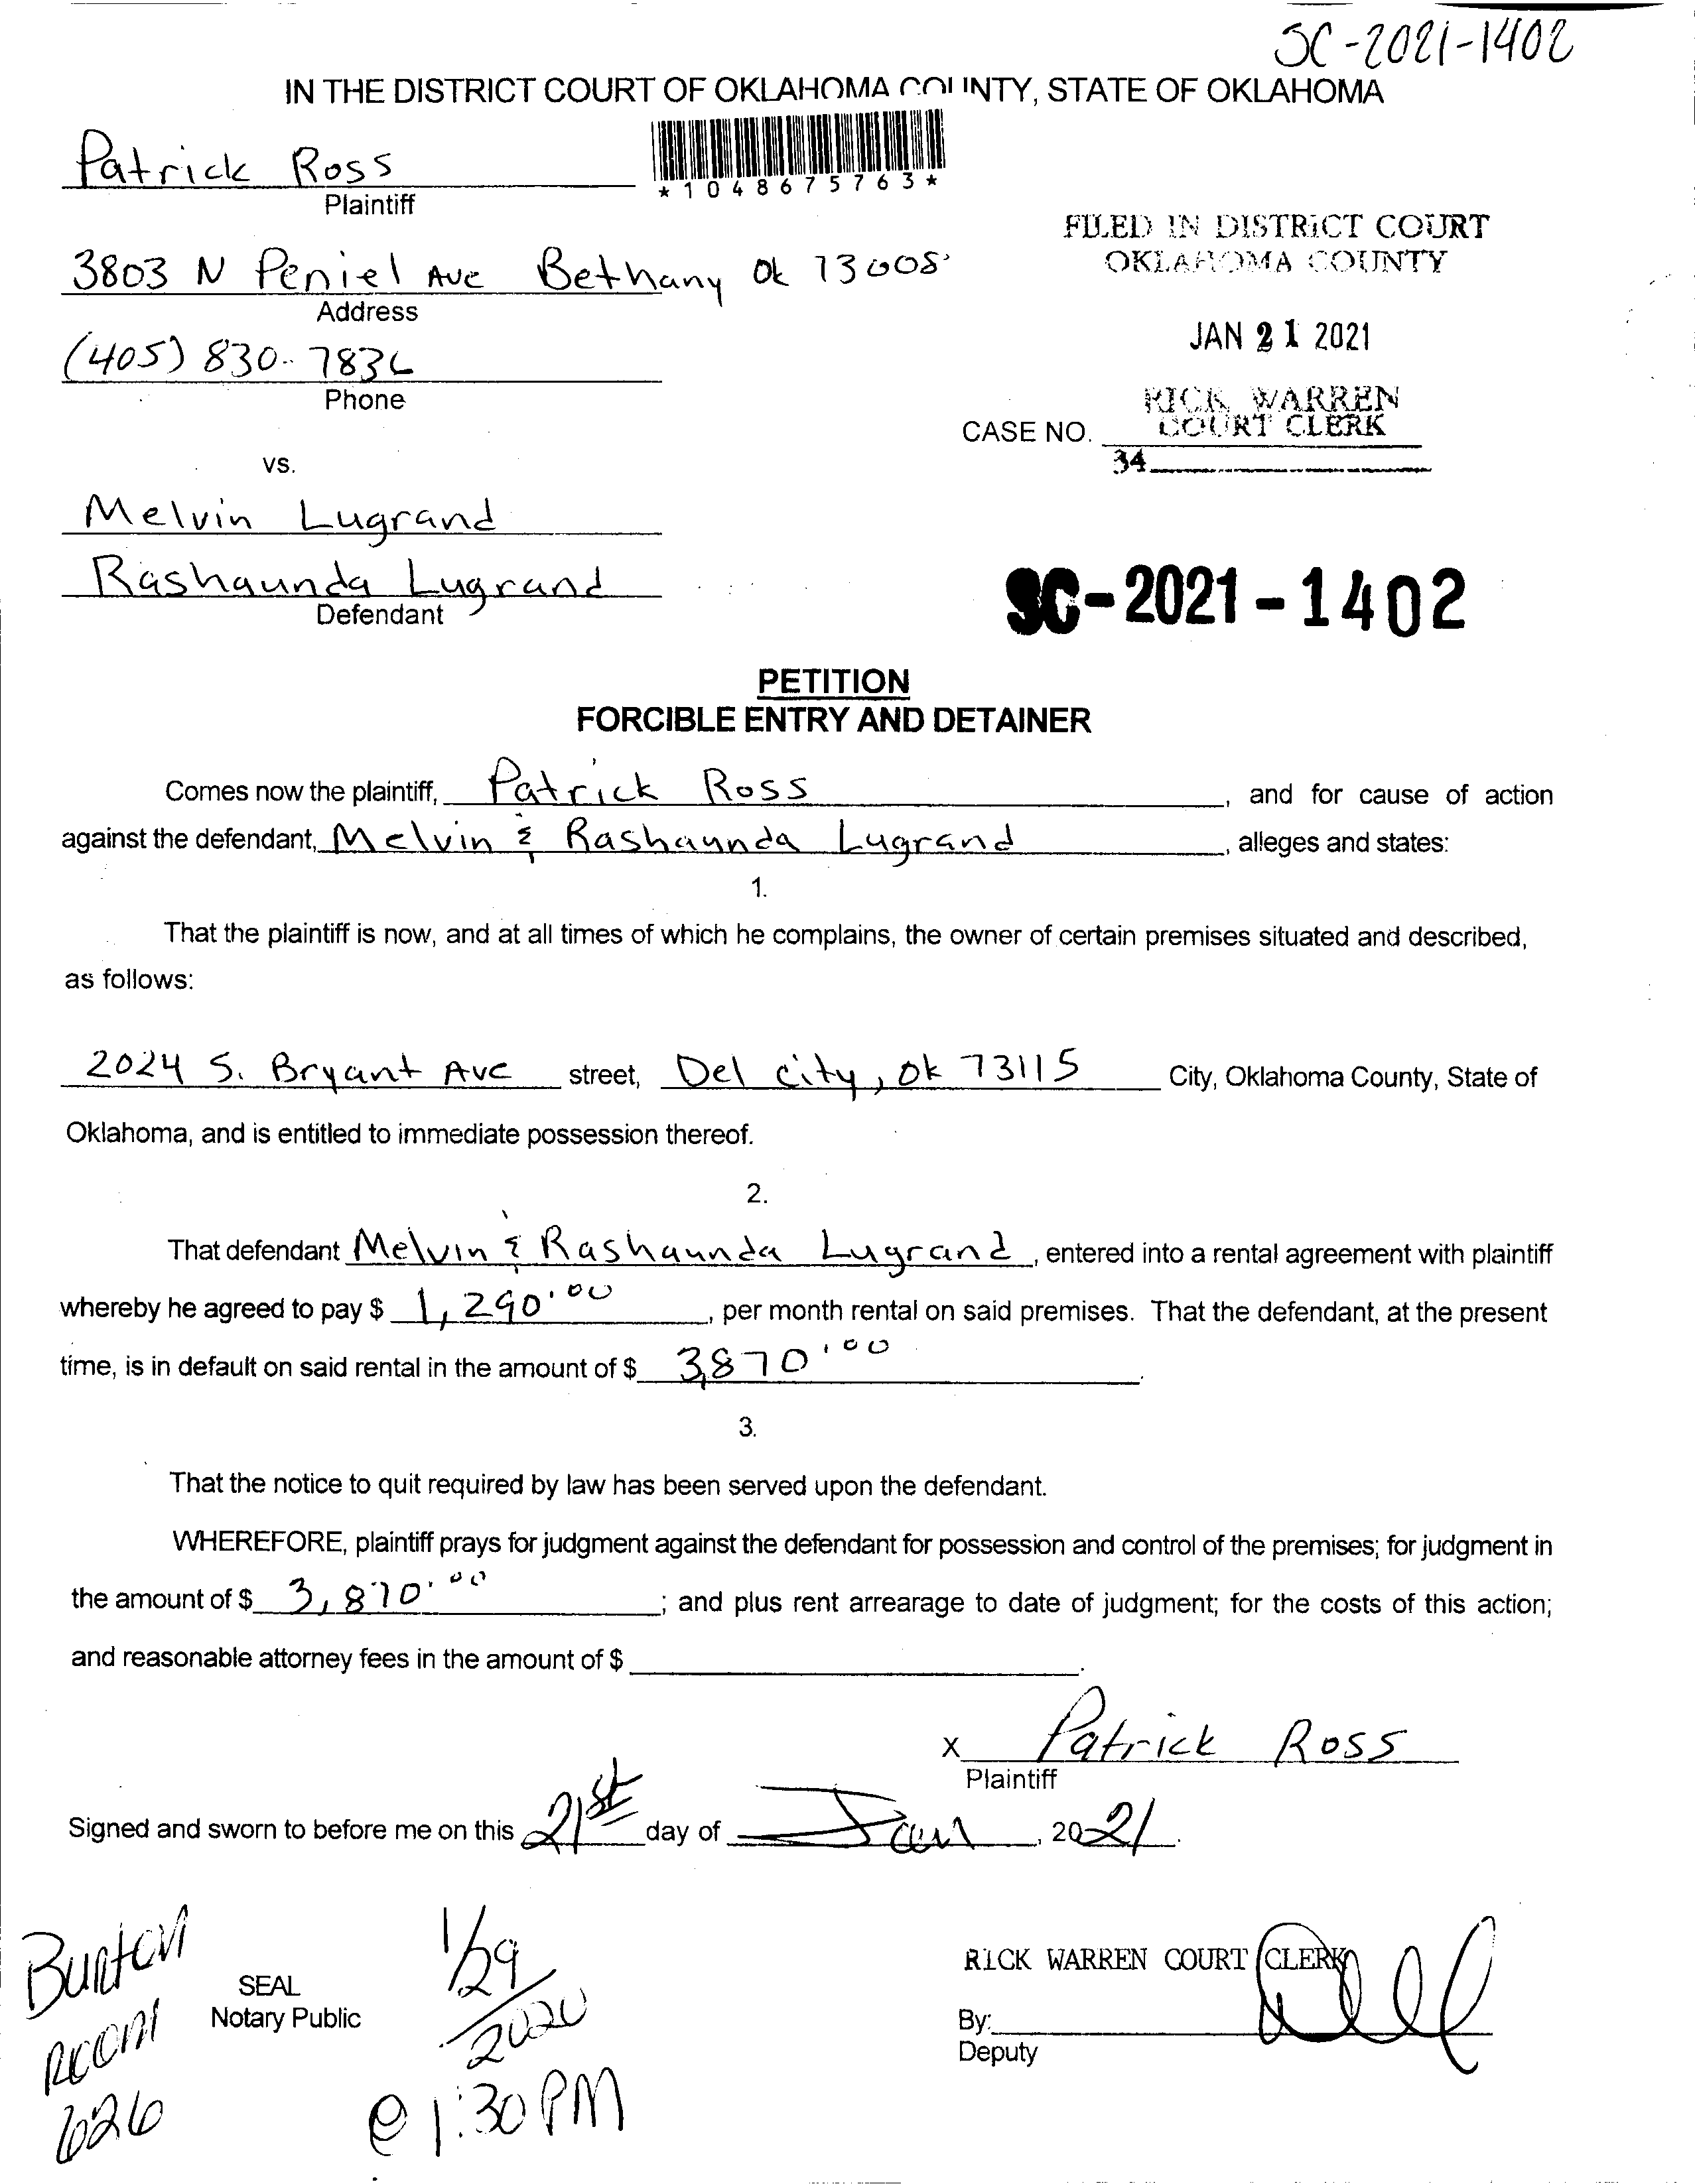 SC-2021-1402
IN THE DISTRICT COURT OF OKLAHOMA COUNTY, STATE OF OKLAHOMA
Patrick Ross
*1048675763*
Plaintiff
FILED IN DISTRICT COURT
OKLAHOMA COUNTY
3803 N Peniel Ave Bethany Ok 73008
Address
JAN 21 2021
(405) 830-7836
Phone
RICK WARREN
COURT CLERK
CASE NO.
34
vs.
Melvin Lugrand
Rashaunda Lugrand
Defendant
SC-2021-1402
PETITION
FORCIBLE ENTRY AND DETAINER
Comes now the plaintiff, Patrick Ross, and for cause of action
against the defendant, Melvin & Rashaunda Lugrand, alleges and states:
1.
That the plaintiff is now, and at all times of which he complains, the owner of certain premises situated and described,
as follows:
2024 S. Bryant Ave street, Del city, Ok 73115 City, Oklahoma County, State of
Oklahoma, and is entitled to immediate possession thereof.
2.
That defendant Melvin & Rashaunda Lugrand, entered into a rental agreement with plaintiff
whereby he agreed to pay $ 1,290.00, per month rental on said premises. That the defendant, at the present
time, is in default on said rental in the amount of $ 3,870.00.
3.
That the notice to quit required by law has been served upon the defendant.
WHEREFORE, plaintiff prays for judgment against the defendant for possession and control of the premises; for judgment in
the amount of $ 3,870.00; and plus rent arrearage to date of judgment; for the costs of this action;
and reasonable attorney fees in the amount of $
X Patrick Ross
Plaintiff
Signed and sworn to before me on this 21st day of Jan, 2021.
Burton
Room
626
SEAL
Notary Public
1/29/2020
@ 1:30 PM
RICK WARREN COURT CLERK
By:
Deputy